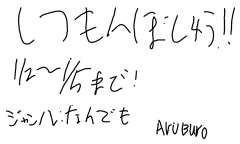 しつもんぼしゅう!!
1/2〜1/5まで!
ジャンル:なんでも
Aruburo